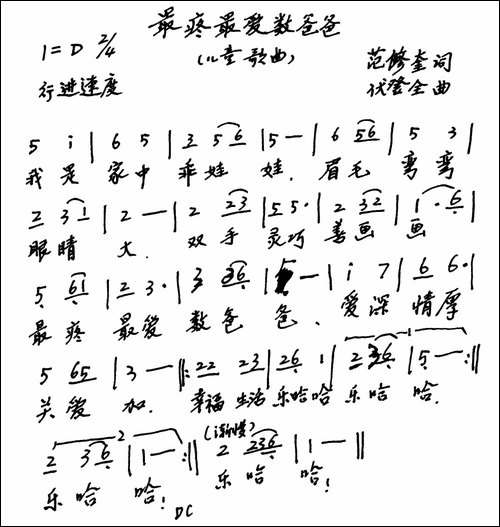 最疼最爱数爸爸
1=D 2/4
(儿童歌曲)
范修奎词
行进速度
伏登全曲
5 i | 6 5 | 3 56 | 5 — | 6 56 | 5 3 |
我是 家中 乖娃 娃. 眉毛 弯弯
2 31 | 2 — | 2 23 | 55· | 2 32 | 1·6 |
眼睛 大. 双手 灵巧 善画 画
5 61 | 23· | 3 36 | 5 — | i 7 | 6 6· |
最疼 最爱 数爸 爸、 爱深 情厚
5 65 | 3 — ‖: 22 23 | 26 1 | 2 36 | 5 — :‖
关爱 加. 幸福生活 乐哈哈 乐哈 哈.
2
(渐慢)
2 36 | 1 — :‖ 2 236 | 1 — ‖
乐哈 哈! 乐哈 哈!
DC